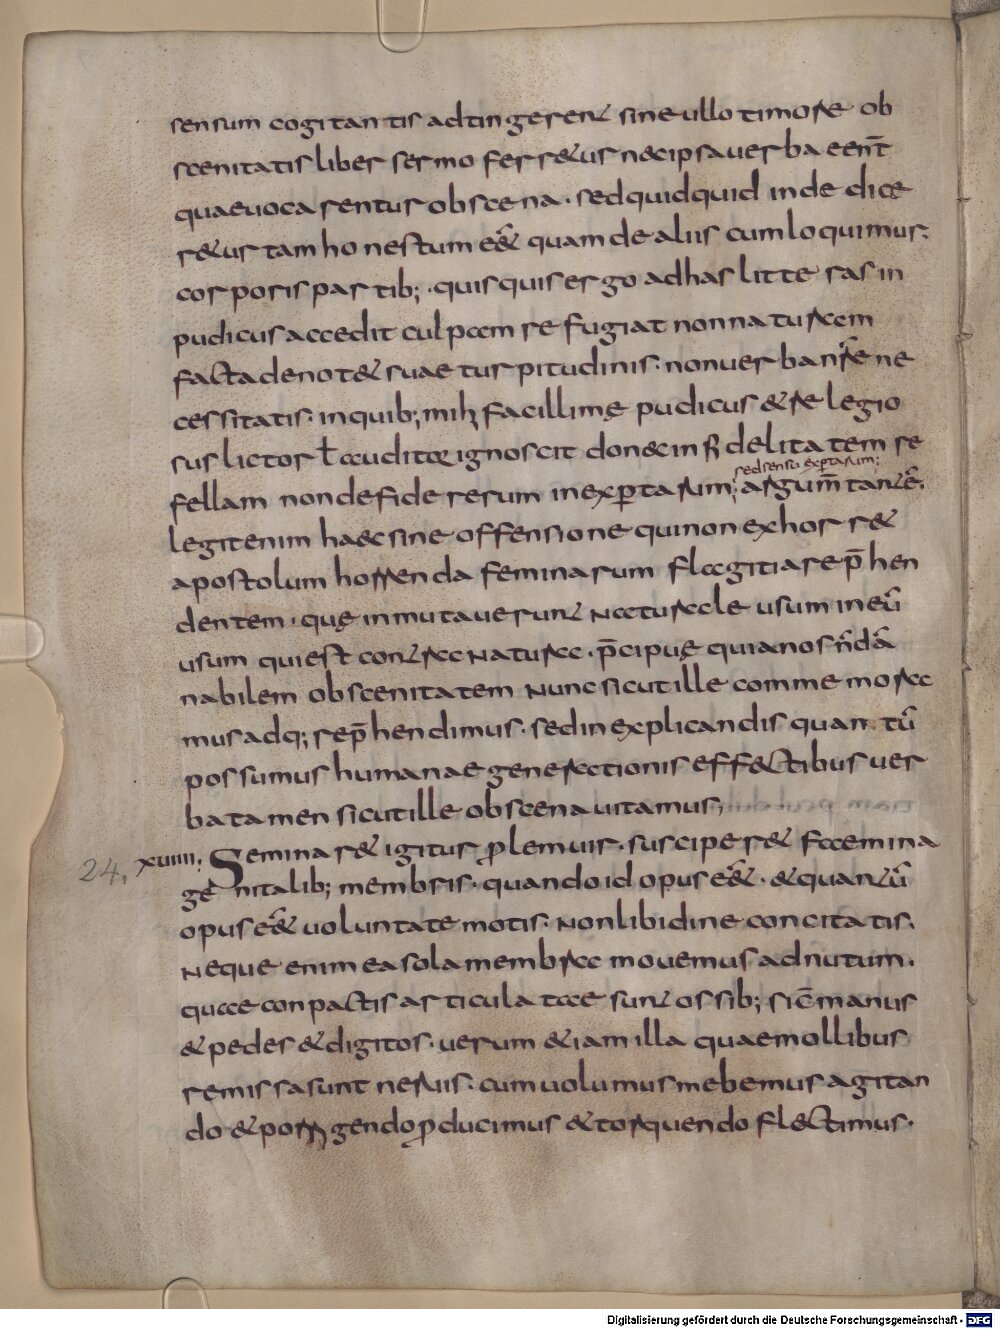 sensum cogitantis adtingerent sine ullo timore ob
scenitatis liber sermo ferretur nec ipsa uerba eent̄
quae uocarentur obscena · sed quidquid inde dice
retur tam honestum eēt quam de aliis cum loquimur
corporis partib; · quisquis ergo ad has litteras in
pudicus accedit culpam refugiat non naturam
facta denotet suae turpitudinis · non uerba nr̄e ne
cessitatis · in quib; mih facillimę pudicus & relegio
sus lictor ł auditor ignoscit donec infidelitatem re
sed sensu expertarum;
fellam non de fide rerum inexpertarum; argum̄tantē.
legit enim haec sine offensione qui non exhorret
apostolum horrenda feminarum flagitia rep̄hen
dentem · quę inmutauerunt naturale usum in eū
usum qui est contra natura · p̄cipuę quia nos n̄ dā
nabilem obscenitatem nunc sicut ille commemora
mus adq; rep̄hendimus · sed in explicandis quantū
possumus humanae generationis effectibus uer
ba tamen sicut ille obscena uitamus;
24. xuiiii. Seminaret igitur ꝓlem uir · susciperet faemina
genitalib; membris · quando id opus eēt · & quantū
opus eēt uoluntate motis · non libidine concitatis.
neque enim ea sola membra mouemus ad nutum.
quae conpactis articulatae sunt ossib; sic̄ manus
& pedes & digitos · uerum etiam illa quae mollibus
remissa sunt neruis · cum uolumus mebemus agitan
do & porrigendo ꝓducimus & torquendo flectimus ·
Digitalisierung gefördert durch die Deutsche Forschungsgemeinschaft - DFG